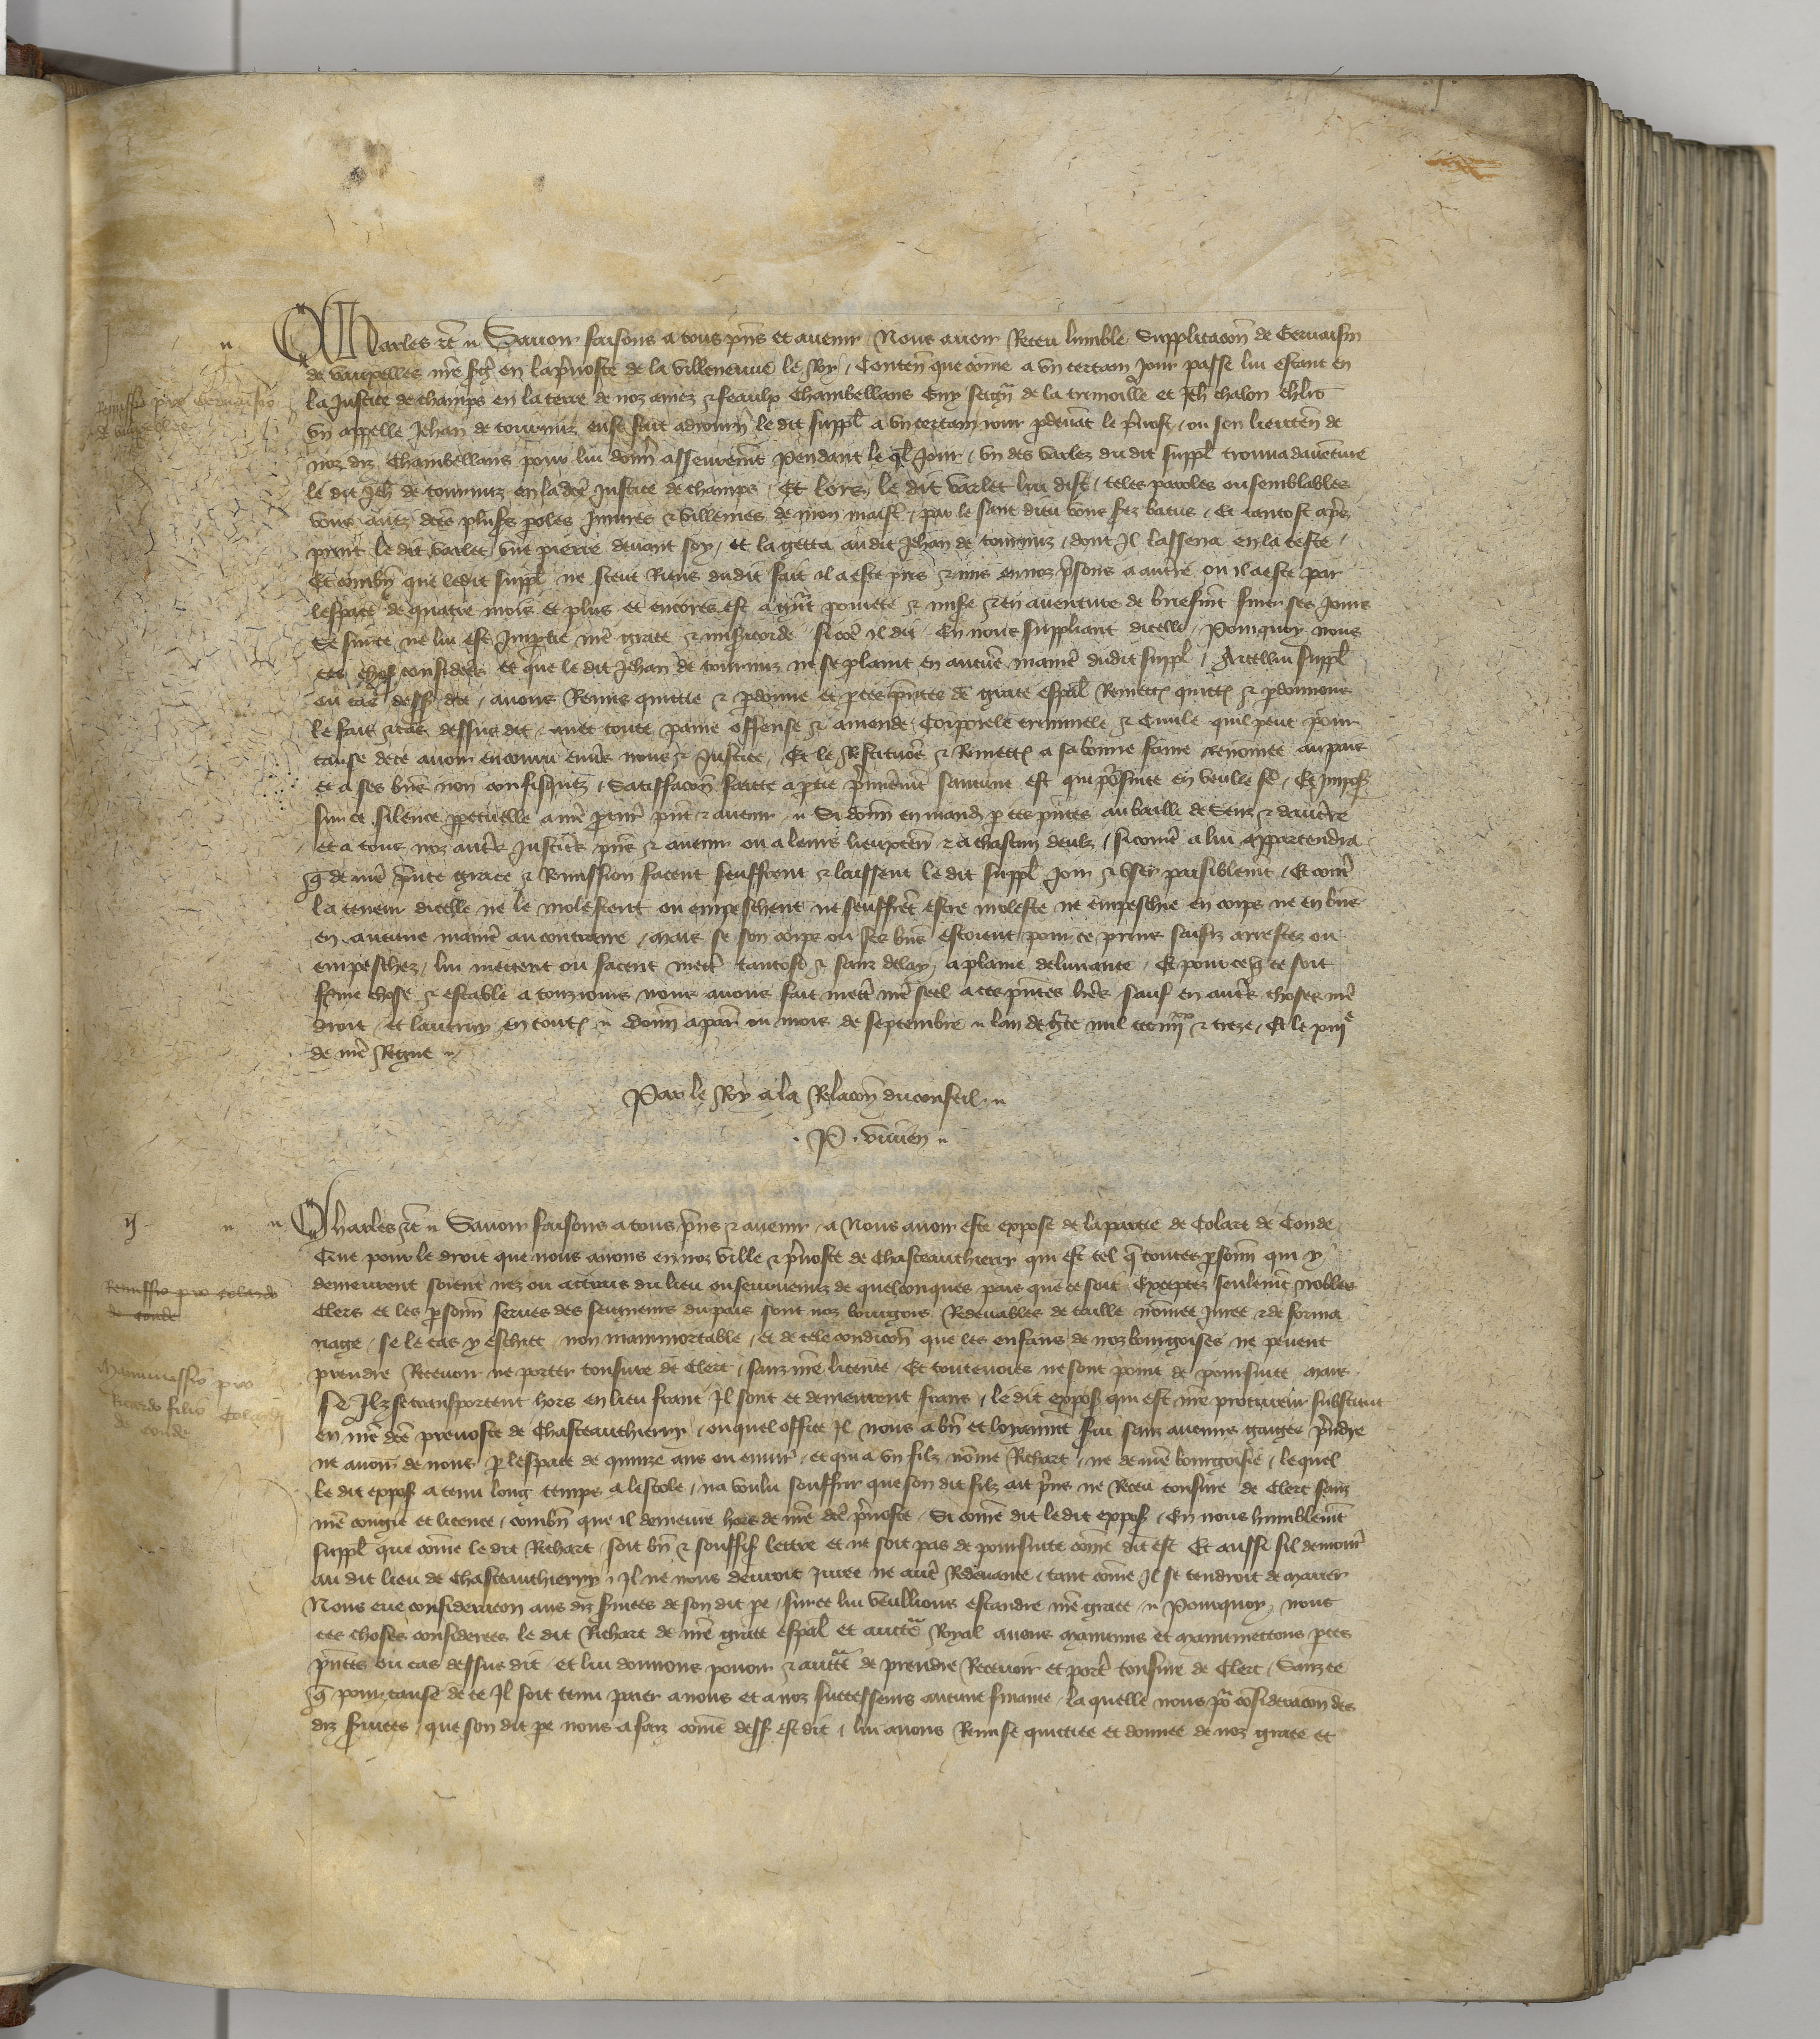 Charles etc̃ Savoir faisons a tous p̃ns et avenir Nous avoir Receu lumble Supplicacōn de Gervaisin
de vaupelles nr̃e en la p̃voste de la villeneuve le Roy Contenant que cōme a un certain Jour passe lui estant en
la Justice de champs en la terre de noz amez & feaulx Chambellans Guy seigñ de la trimoille et Jeh̃ chalon chlr̃
un appelle Jehan de tournuz eust fait adiourñ le dit suppl̃ a un certain iour p devãt le p̃vost ou son lieuteñ de
noz diz Chambellans pour lui donñ asseuremẽt Pendant le ql̃ Jour un des varlez du dit suppl̃ trouva daventure
le dit Jeh̃ de tournuz en la dc̃e Justice de champs Et lors le dit varlet lui dist teles paroles ou semblables
vous avez dc̃es plus̃s poles Iniures & villenies de mon maist̃ par le sant dieu vous s̃ez batus Et tantost ap̃s
print le dit varlet une pierre devant soy et la getta au dit Jehan de tournuz dont Il lassena en la teste
Et combñ que ledit suppl̃ ne sceut Riens dudit fait il a este p̃ns & mis en noz p̃sons a aucr̃e ou il a este par
lespace de quatre mois et plus et encores est a gr̃nt povrete & mis̃e & en aventure de briefmẽt finer ses Jours
Se sur ce ne lui est Imp̃tie nr̃e grace & mis̃icorde si cõe il dit En nous suppliant dicelle Pourquoy nous
ces choses considerees et que le dit Jehan de tournuz ne se plaint en aucune manĩe dudit suppl̃ A icellui suppl̃
ou cas dess̃ dit avons Remis quitte & p̃donne et p ces p̃ntes de grace esp̃al Remettõs quittõs & p̃donnons
le fait & cas dessus dit avec toute paine offense & amende Corporele criminele & Civile quil peut pour
cause de ce avoir encouru envs̃ nous & Justice Et le Restituõs & Remettõs a sa bonne fame renomee au pais
et a ses biens non confisquez Satiffacōn faicte a p̃tie p̃mieremẽt saucune est qui poursuite en veulle fẽ Et Imposõs
sur ce silence p̃petuelle a nr̃e p̃cur̃ p̃nt & avenir Si donñ en mand̃ p ces p̃ntes au bailli de Sens & daucr̃e
et a tous noz autr̃s Justic̃rs p̃ns & avenir ou a leurs lieuxteñ & a chascun deulx si comẽ a lui appartendra
q̃ de nr̃e p̃nte grace & Remission facent seuffrent & laissent le dit suppl̃ Joir & user paisiblemẽt Et contr̃
la teneur dicelle ne le molestent ou empeschent ne seuffrẽt estre moleste ne empeschie en corps ne en biens
en aucune manĩe au contraire mais se son corps ou ses biens estoient pour ce prins saisiz arrestez ou
empeschez lui mettent ou facent mettr̃ tantost & sanz delay a plaine delivrance Et pour ce q̃ ce soit
ferme chose & estable a tousiours nous avons fait mettr̃ nr̃e seel a ces p̃ntes lr̃es Sauf en autr̃s choses nr̃e
droit et lautruy en toutes Donñ a paris ou mois de Septembre lan de gr̃ce mil ccc iiijxx & treze Et le xiiije
de nr̃e Regne
Par le Roy a la Relacōn du conseil
P. vivien
ij
Charles etc̃ Savoir faisons a tous p̃ns & avenir a Nous avoir este expose de la partie de Colart de Conde
Que pour le droit que nous avons en noz ville & p̃voste de Chasteauthierry qui est tel q̃ toutes p̃sonñ qui y
demeurent soient nez ou attrais du lieu ou seurvenuz de quelconques pais que ce soit Exceptez seulemẽt Nobles
Clers et les p̃sonñ serves des seigneurs du pais sont noz bourgois Redevables de taille nõmee Juree & de forma
riage se le cas y eschiet non mainmortable et de tele condicōn que les enfans de noz bourgoises ne pevent
prendre Recevoir ne porter tonsure de Clerc sanz nr̃e licence Et toutevoies ne sont point de poursuite mais
se Ilz se transportent hors en lieu franc Il sont et demeurent frans le dit expos̃ qui est nr̃e procureur substitut
en nr̃e dc̃e prevoste de Chasteauthierry ou quel office Il nous a bñ et loyaumẽt s̃vi sanz aucuns gaiges p̃ndre
ne avoir de nous p lespace de quinze ans ou environ et qui a un filz nõme Richart ne de nr̃e bourgoisie lequel
le dit expos̃ a tenu long temps a lescole na voulu souffrir que son dit filz ait p̃ns ne Receu tonsure de Clerc sanz
nr̃e congie et licence combñ que il demeure hors de nr̃e dc̃e p̃voste Si comẽ dit le dit expos̃ En nous humblemẽt
suppl̃ que cõme le dit Richart soit bñ & souffis̃ lettre et ne soit pas de poursuite cõme dit est Et aussi sil demour̃
au dit lieu de Chasteauthierry Il ne nous devroit Juree ne autr̃ Redevance tant cõme Il se tendroit de marier
Nous eue consideracōn aus diz services de son dit pe sur ce lui veullions estandre nr̃e grace Pourquoy nous
ces choses considerees le dit Richart de nr̃e grace esp̃al et auct̃e Royal avons manumis et manumettons p ces
p̃ntes ou cas dessus dit et lui donnons povoir & auct̃e de prendre Recevoir et port̃ tonsure de Clerc Sanz ce
q̃ pour cause de ce Il soit tenu paier a nous et a noz successeurs aucune finance la quelle nous pour cõsideracōn des
diz services que son dit pe nous a faiz cõme dess̃ est dit lui avons Remise quictiee et donnee de noz grace et
Remissio pro Gervasio
de vaupelles
Remissio pro Colardo
de Conde
Manumissio pro
Ricardo filio Colardi
de Conde